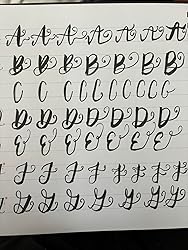 A A A A A A A
B B B B B B B
C C C C C C C C
D D D D D D D
E E E E E E
F F F F F F F
G G G G G G G